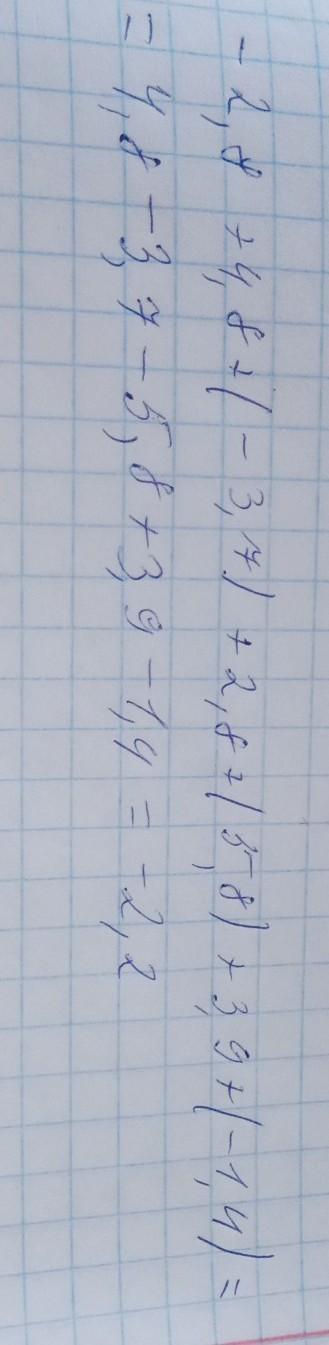 -2,8 +4,8+(-3,7)+2,8+(5,8)+3,9+(-1,4)=
=4,8-3,7-5,8+3,9-1,4=-2,2